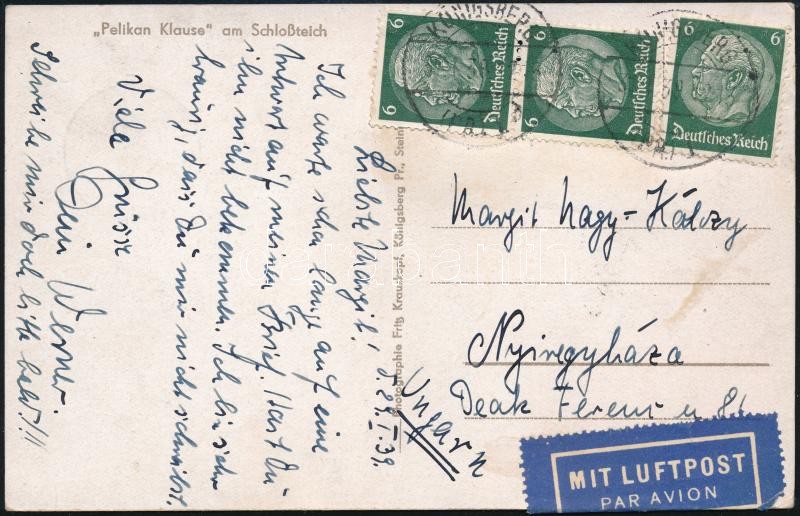 „Pelikan Klause“ am Schloßteich
Liebste Margit! d. 29.I.39.
Ich warte schon lange auf eine
Antwort auf meinen Brief. Hast Du
ihn nicht bekommen. Ich bin sehr
traurig, dass Du mir nicht schreibst.
Viele Grüsse
Dein Werner.
Schreibe mir doch bitte bald!!!
Photographie Fritz Krauskopf, Königsberg Pr., Stein
6 Deutsches Reich
6 Deutsches Reich
6 6 Deutsches Reich
KÖNIGSBERG
Margit Nagy-Kálczy
Nyiregyháza
Deak Ferenc u 81
Ungarn
MIT LUFTPOST
PAR AVION